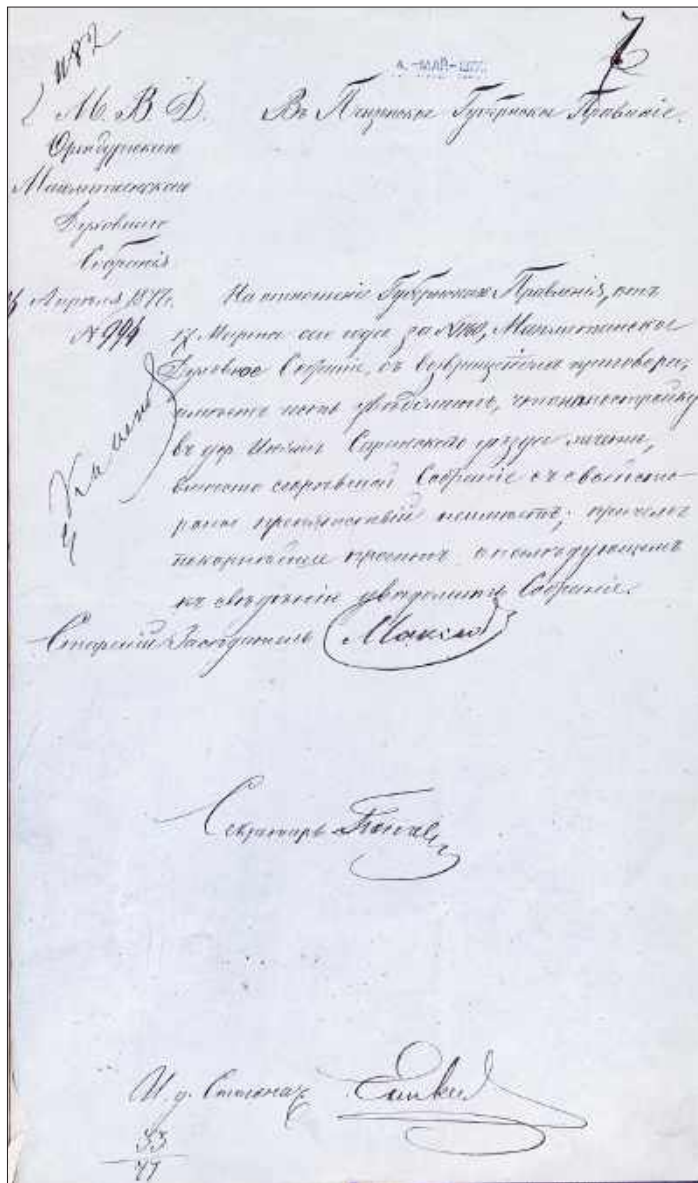 1182
4 - МАЙ - 1877
7
М. В. Д.
Оренбургскаго
Магометанскаго
Духовнаго
Собранія
Апрѣля 1877 г.
№ 994
Въ Пензенское Губернское Правленіе.
На отношеніе Губернскаго Правленія, отъ
17 Марта сего года за №, Магометанское
Духовное Собраніе, съ возвращеніемъ приговора,
имѣетъ честь увѣдомить, что на постройку
въ дер. Саранскаго уѣзда мечети,
вмѣсто сгорѣвшей Собраніе съ своей сто-
роны препятствій не имѣетъ; причемъ
покорнѣйше проситъ о послѣдующемъ
къ свѣдѣнію увѣдомить Собраніе.
Старшій Засѣдатель
Секретарь
И. д. Столонач.
33
77